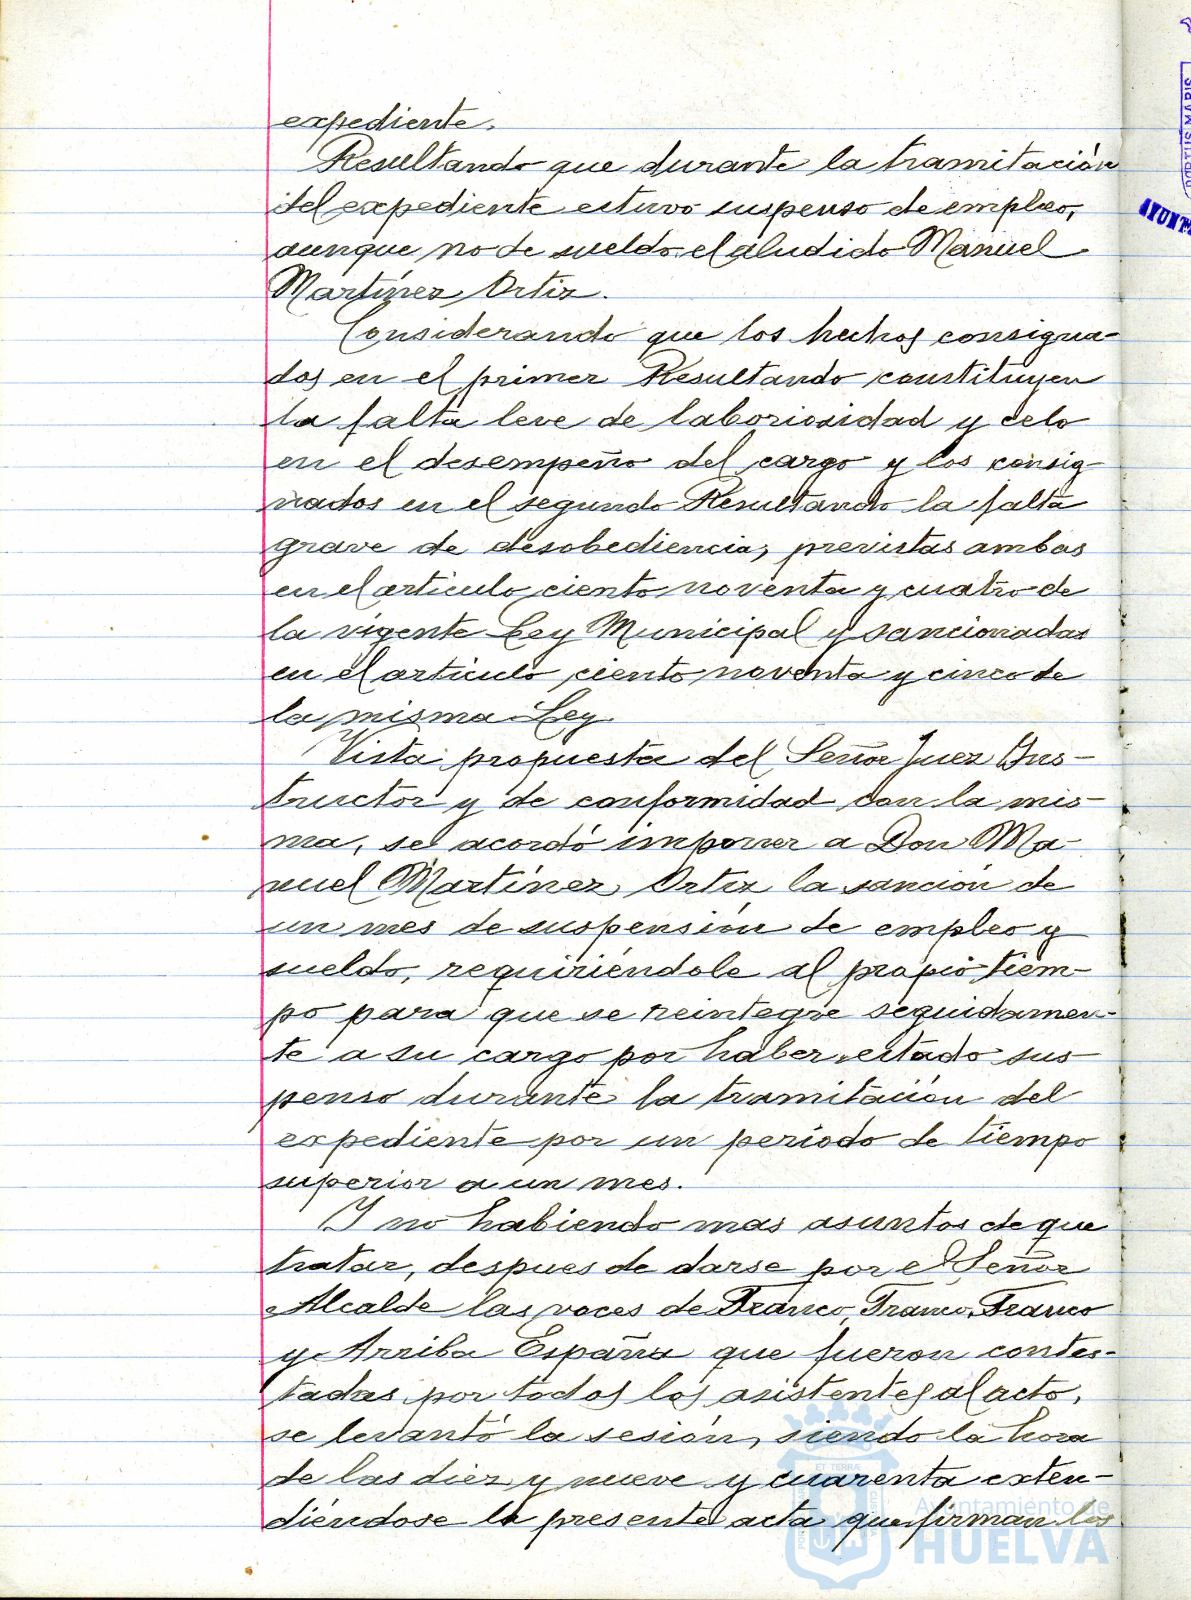 expediente.
Resultando que durante la tramitación
del expediente estuvo suspenso de empleo,
aunque no de sueldo, el aludido Manuel
Martínez Ortiz.
Considerando que los hechos consigna-
dos en el primer Resultando constituyen
la falta leve de laboriosidad y celo
en el desempeño del cargo y los consig-
nados en el segundo Resultando la falta
grave de desobediencia, previstas ambas
en el articulo ciento noventa y cuatro de
la vigente Ley Municipal y sancionadas
en el articulo ciento noventa y cinco de
la misma Ley.
Vista propuesta del Señor Juez Ins-
tructor y de conformidad con la mis-
ma, se acordó imponer a Don Ma-
nuel Martínez Ortiz la sanción de
un mes de suspensión de empleo y
sueldo, requiriéndole al propio tiem-
po para que se reintegre seguidamen-
te a su cargo por haber estado sus-
penso durante la tramitación del
expediente por un período de tiempo
superior a un mes.
Y no habiendo mas asuntos de que
tratar, despues de darse por el Señor
Alcalde las voces de Franco, Franco, Franco
y Arriba España que fueron contes-
tadas por todos los asistentes al acto,
se levantó la sesión, siendo la hora
de las diez y nueve y cuarenta exten-
diéndose la presente acta que firman los
Ayuntamiento de
HUELVA
PORTUS MARIS
AYUNT